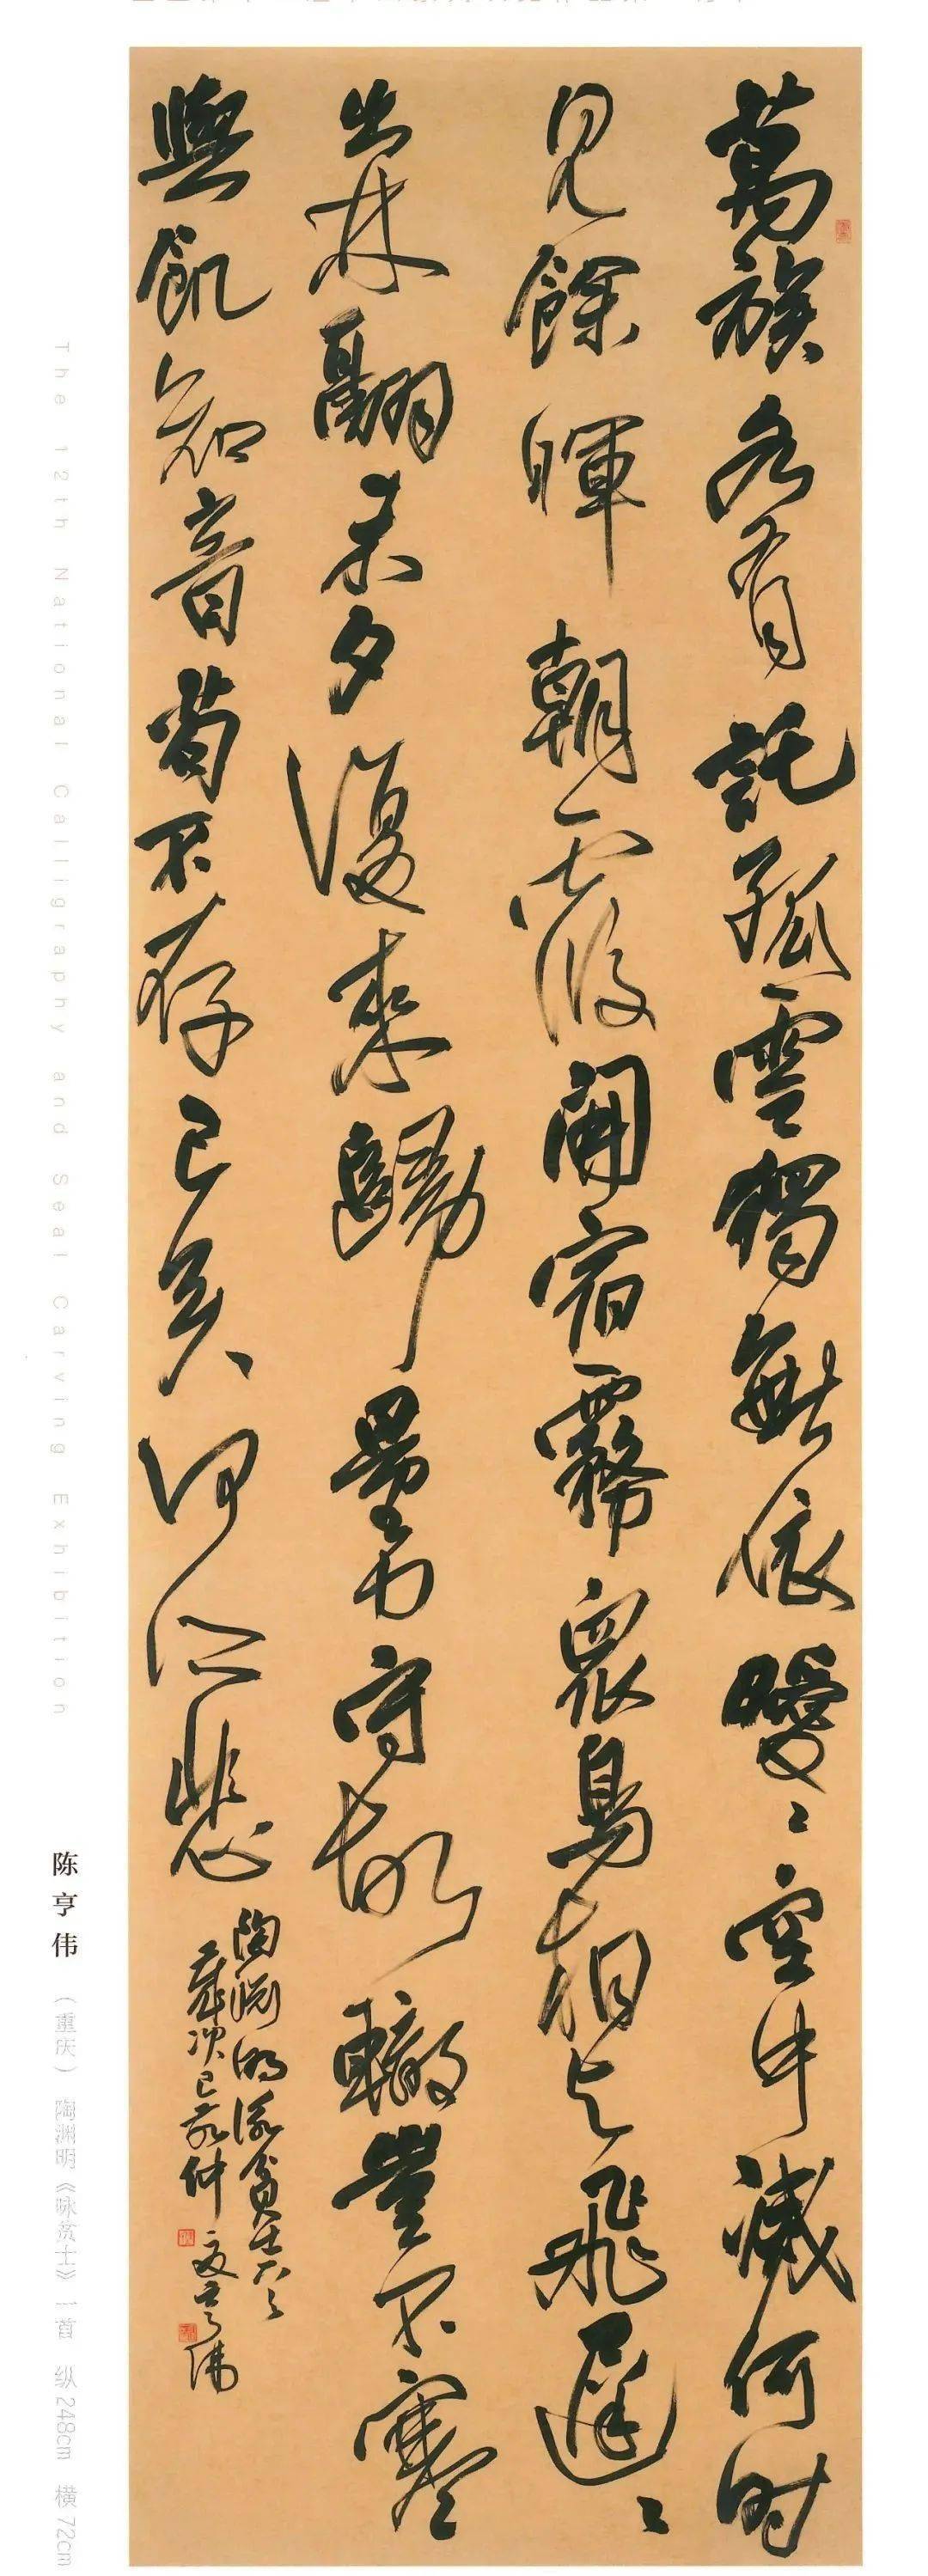 萬族各有託孤雲獨無依曖〻空中滅何时
見餘暉朝霞開宿霧眾鳥相与飛遲〻
出林翮未夕復來歸量力守故轍豈不寒
與飢知音苟不存已矣何所悲
陶淵明詠貧士
歲次己亥仲夏亨偉
The 12th National Calligraphy and Seal Carving Exhibition
陈亨伟（重庆） 陶渊明《咏贫士》一首 纵248cm 横72cm